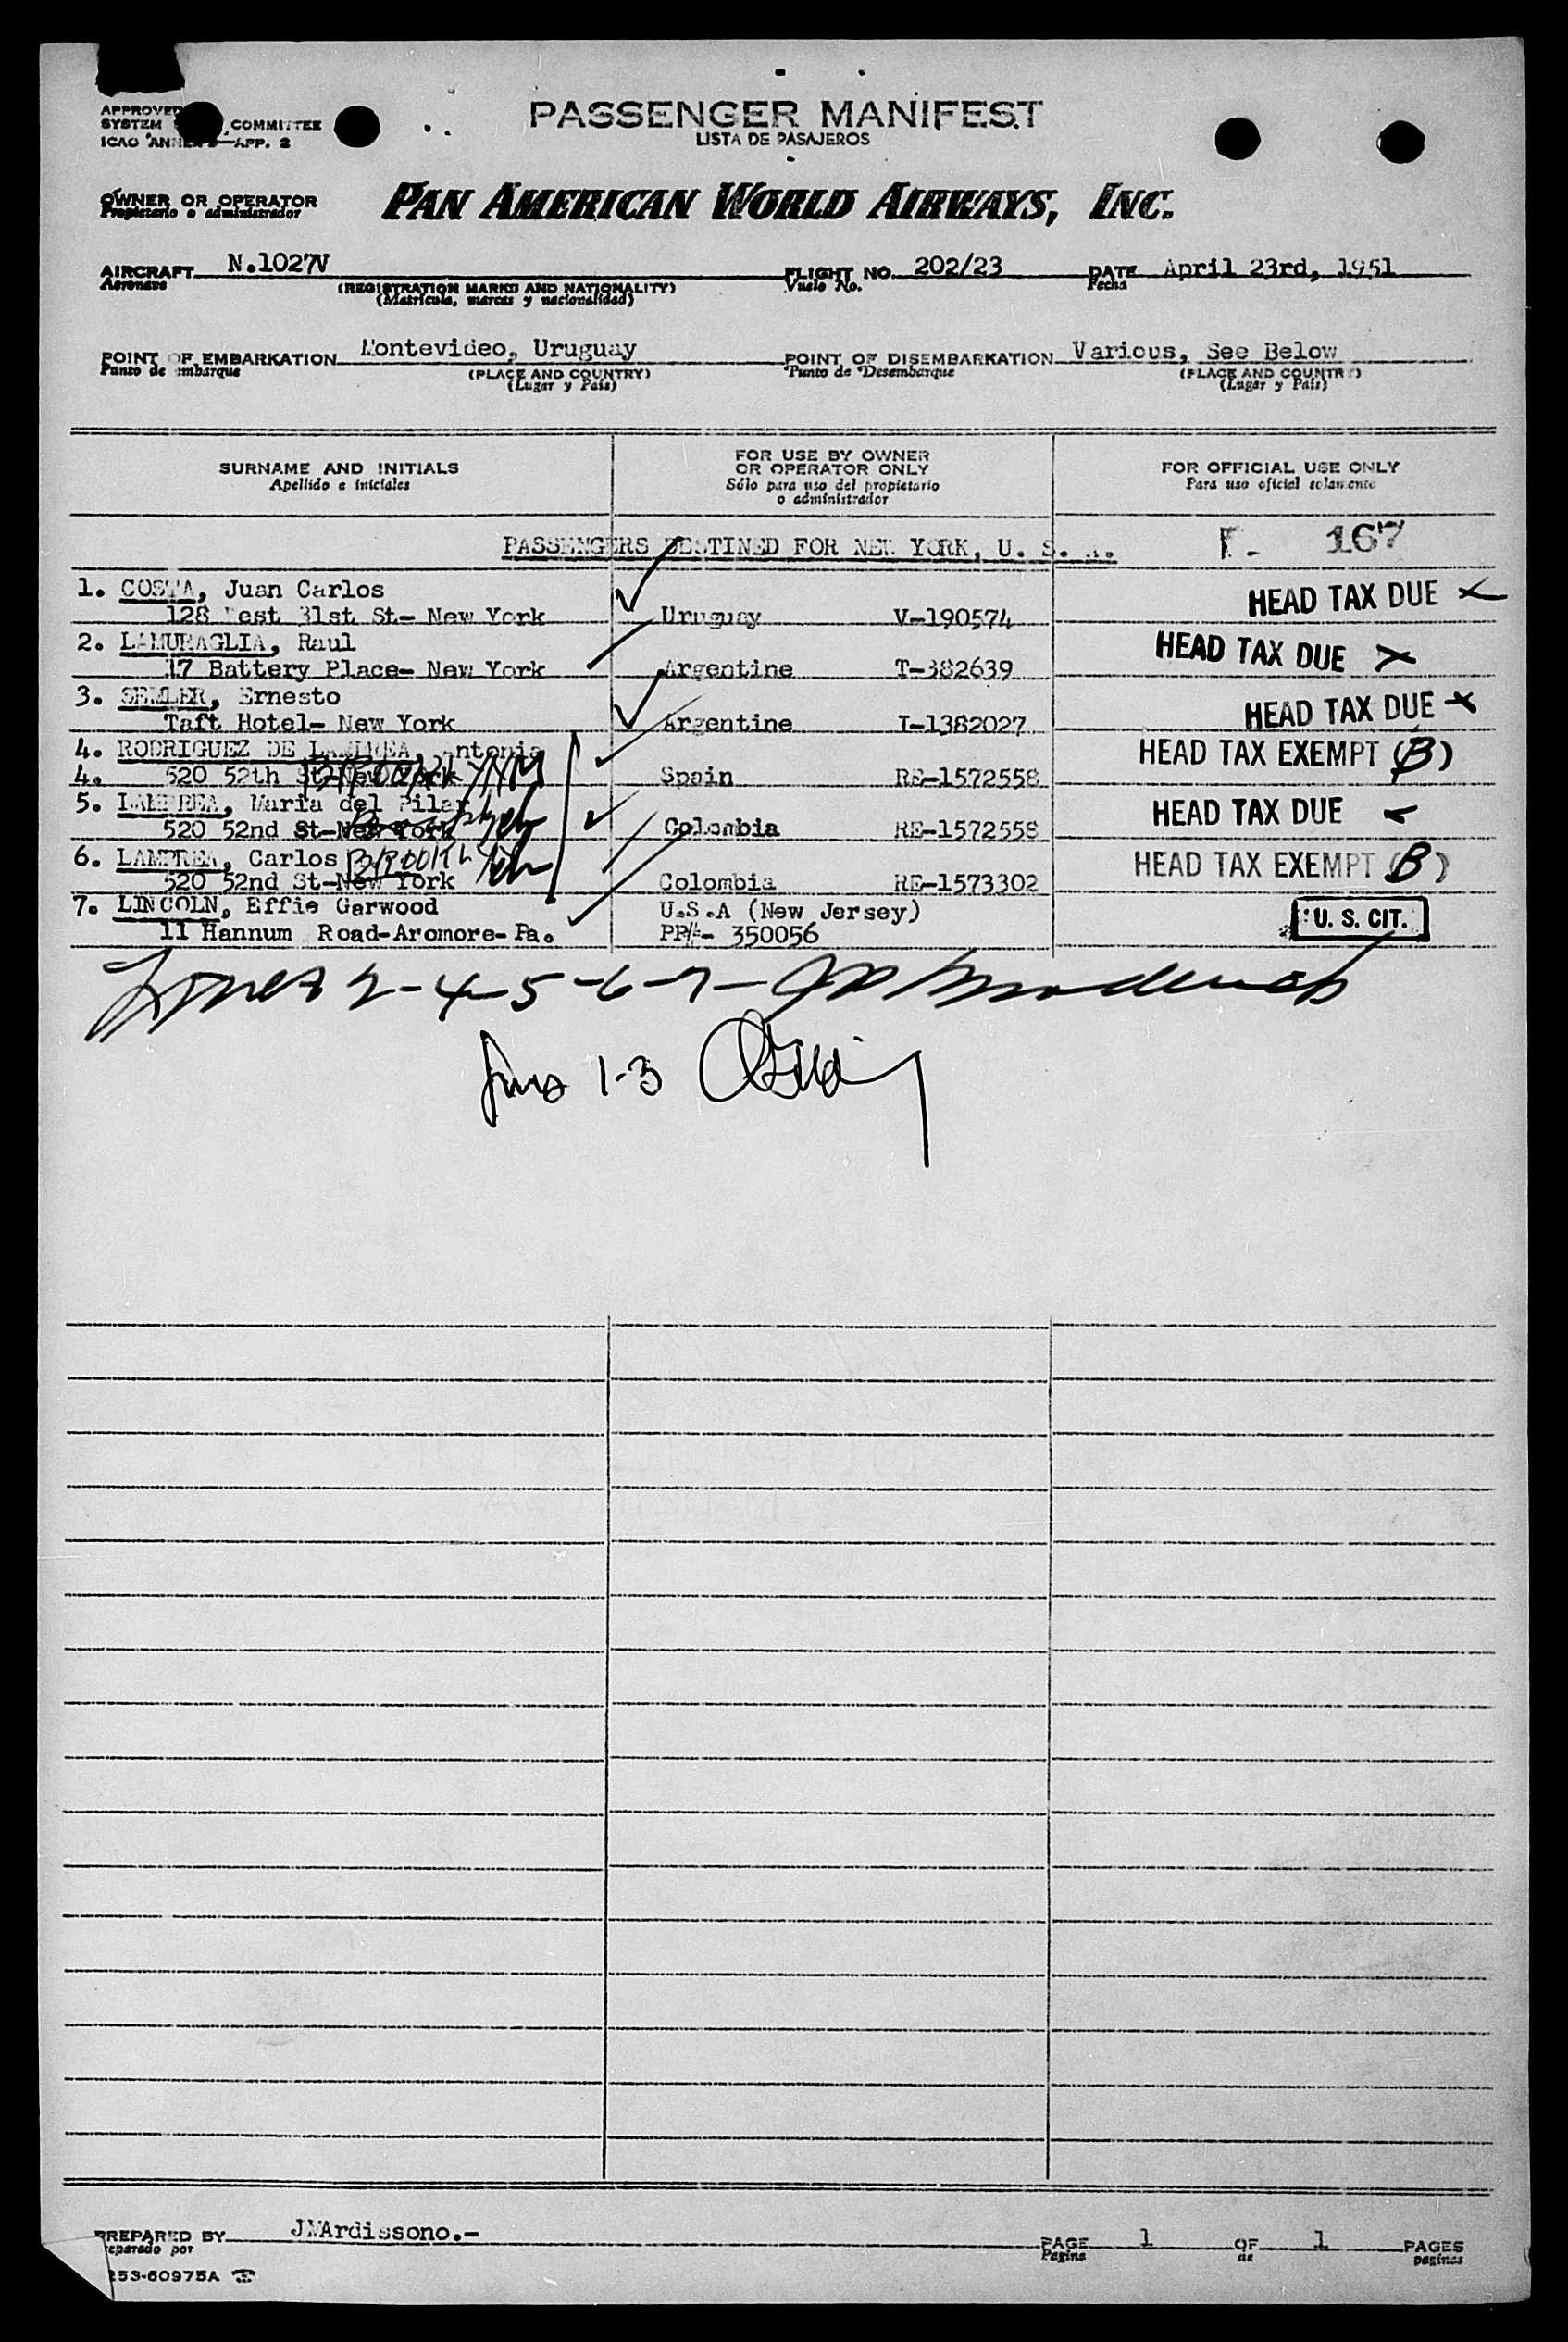 PASSENGER MANIFEST
LISTA DE PASAJEROS
APPROVED
SYSTEM COMMITTEE
ICAO ANNEX APP. 2
OWNER OR OPERATOR
Propietario o administrador
PAN AMERICAN WORLD AIRWAYS, INC.
AIRCRAFT N.1027V FLIGHT NO. 202/23 DATE April 23rd, 1951
Aeronave (REGISTRATION MARKS AND NATIONALITY) Vuelo No. Fecha
(Matrícula, marcas y nacionalidad)
POINT OF EMBARKATION Montevideo, Uruguay POINT OF DISEMBARKATION Various, See Below
Punto de embarque (PLACE AND COUNTRY) Punto de Desembarque (PLACE AND COUNTRY)
(Lugar y País) (Lugar y País)
SURNAME AND INITIALS
Apellido e iniciales
FOR USE BY OWNER
OR OPERATOR ONLY
Sólo para uso del propietario
o administrador
FOR OFFICIAL USE ONLY
Para uso oficial solamente
PASSENGERS DESTINED FOR NEW YORK, U. S. A.
167
1. COSTA, Juan Carlos HEAD TAX DUE
128 West 31st St- New York Uruguay V-190574
2. LAMURAGLIA, Raul HEAD TAX DUE
17 Battery Place- New York Argentine T-382639
3. SEMLER, Ernesto HEAD TAX DUE
Taft Hotel- New York Argentine T-1382027
4. RODRIGUEZ DE LAMPREA, Antonia HEAD TAX EXEMPT (B)
4. 520 52th St-New York BROOKLYN Spain RE-1572558
5. LAMPREA, Maria del Pilar HEAD TAX DUE
520 52nd St-New York Brooklyn Colombia RE-1572559
6. LAMPREA, Carlos BROOKLYN HEAD TAX EXEMPT (B)
520 52nd St-New York Colombia RE-1573302
7. LINCOLN, Effie Garwood U.S.A (New Jersey) U. S. CIT.
11 Hannum Road-Aromore-Pa. PP#- 350056
Lines 2-4-5-6-7-
Lines 1-3
PREPARED BY JMArdissono.- PAGE 1 OF 1 PAGES
Preparado por Pagina de paginas
253-60975A